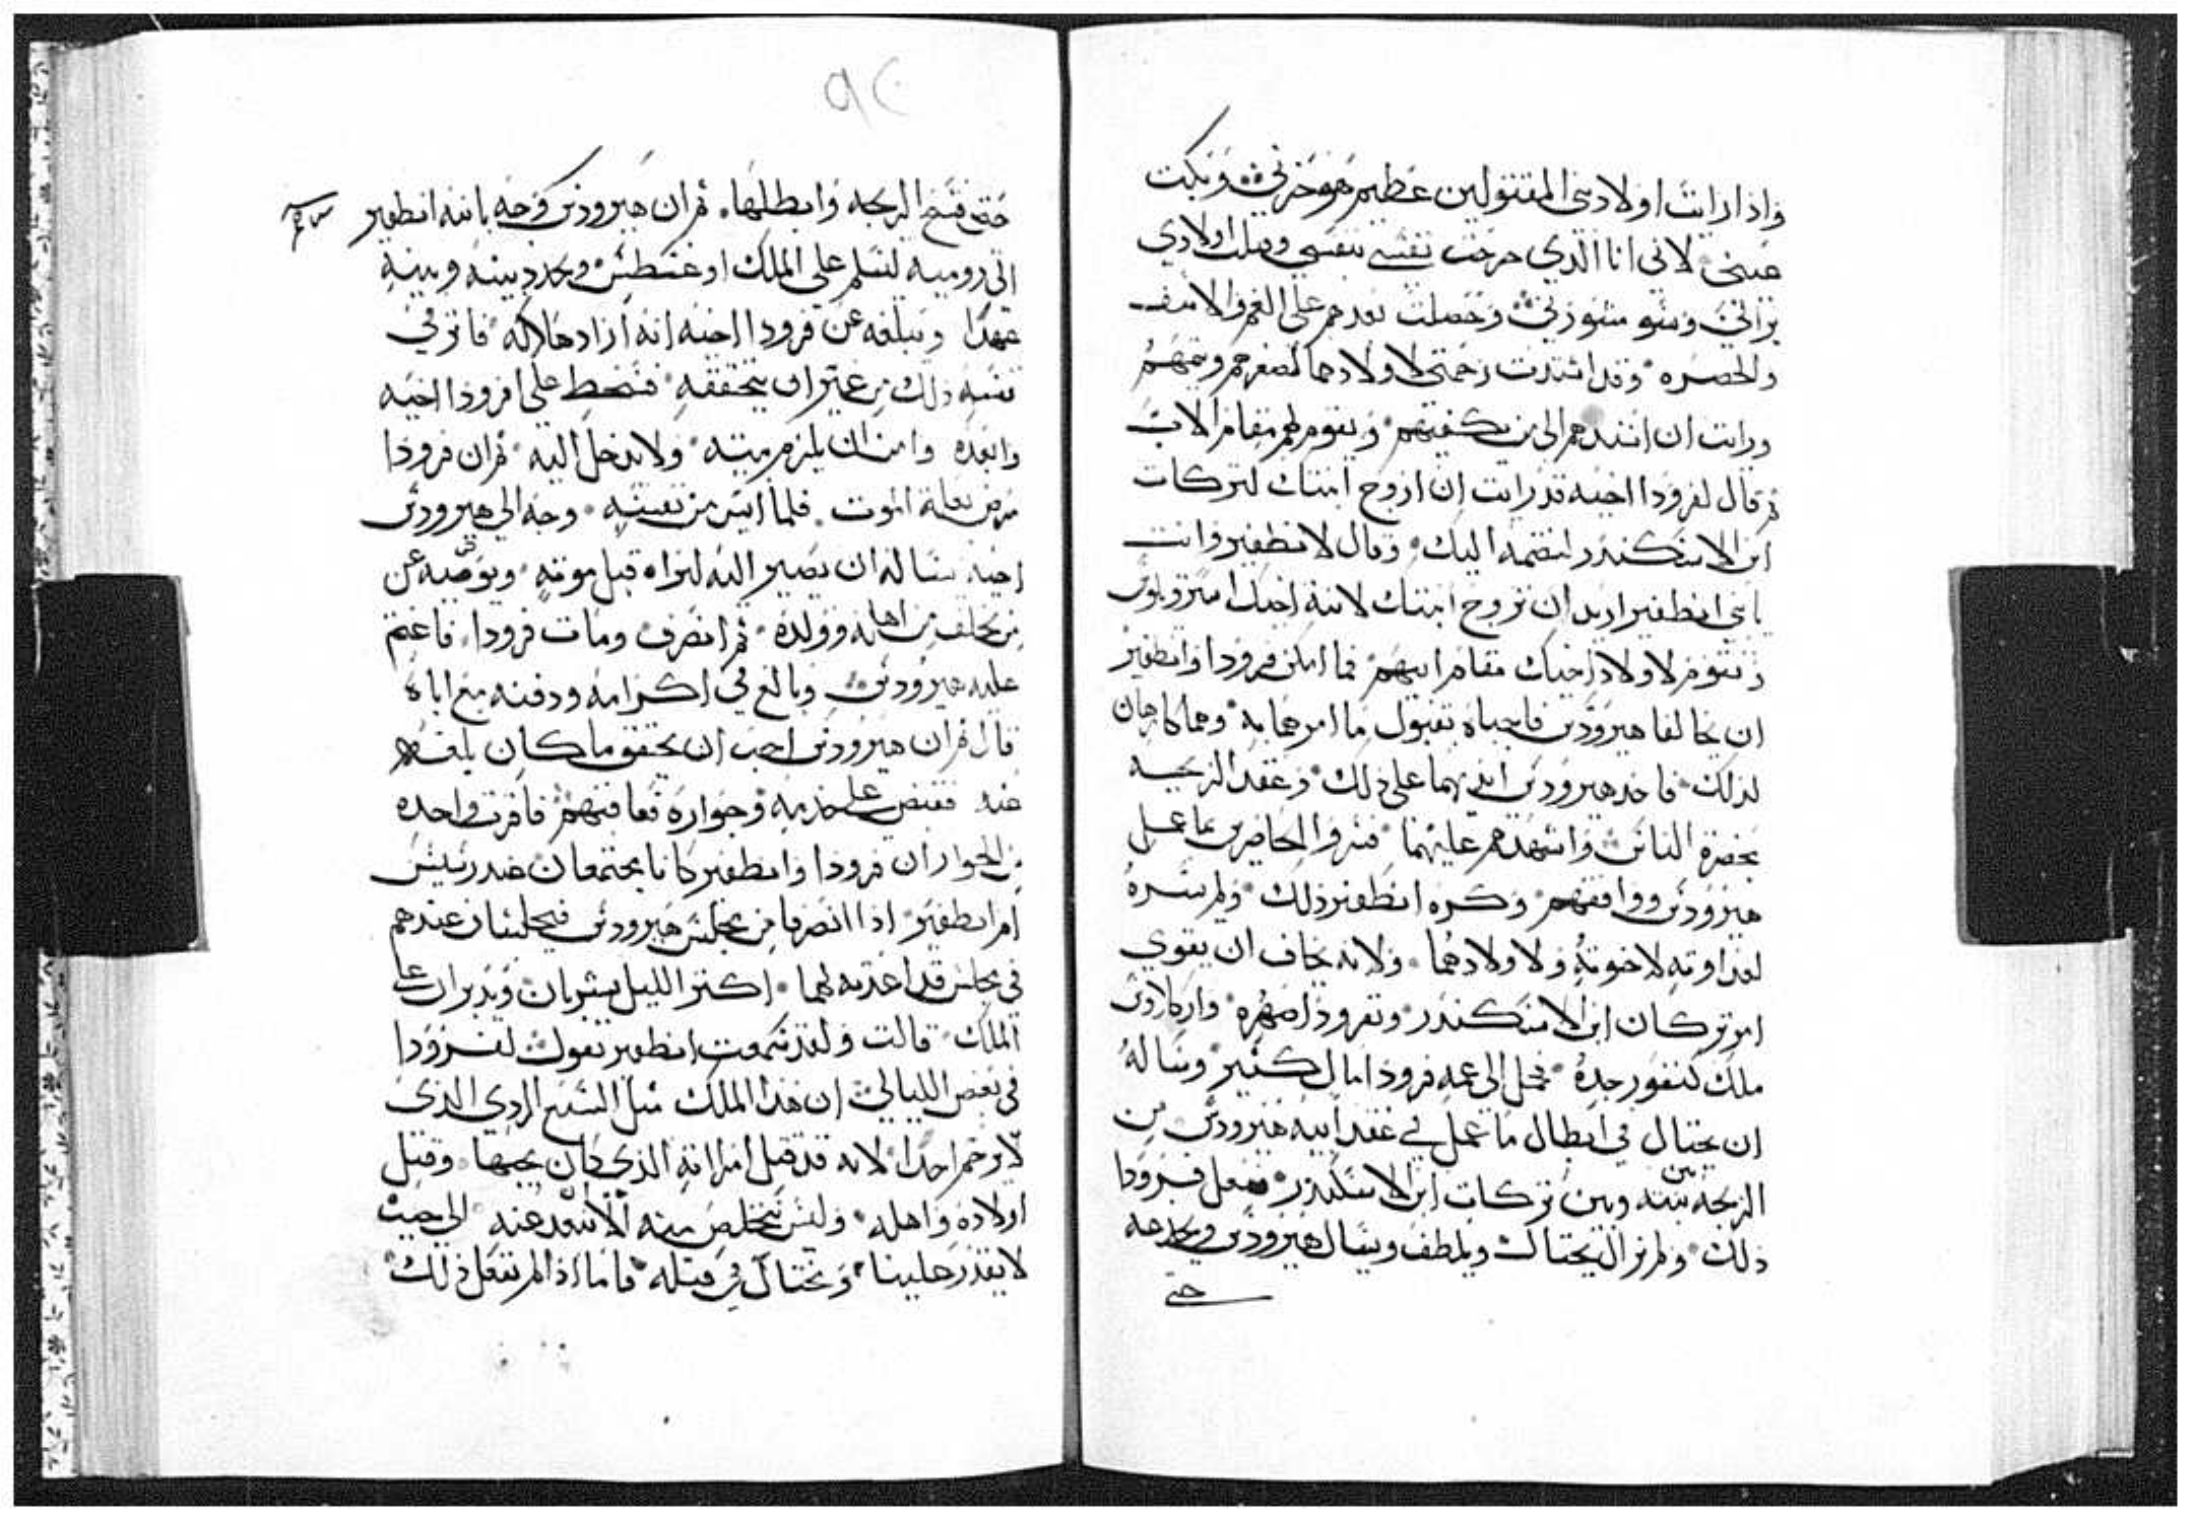 واذا رايت اولاد بني المقتولين عظيم هو حزني وتبكت
عيني لاني انا الذي جرحت نفسي بنفسي وقتلت اولادي
براني وسو مشورتي وحصلت بعدهم على الغم والاسف
والحصره وقد اشتدت رحمتي لاولادهما لصغرهم ويتمهم
ورايت ان اسندهم الى من يكفيهم ويقوم لهم مقام الاب
ثم قال لفرودا اخيه قد رايت ان ازوج ابنتك لتركات
ابن الاسكندر لتضمه اليك وقال لانطفير وانت
يابني انطفير اريد ان تزوج ابنتك لابنة اخيك استروبلوس
وتقوم لاولاد اخيك مقام ابيهم فما امكن فرودا وانطفير
ان يخالفا هيرودس فاجباه بقبول ما امرهما به وهما كارهان
لذلك فاخذ هيرودس ايديهما على ذلك وعقد الزيجه
بحضرة الناس واشهدهم عليهما فسروا الحاضرين بما عمل
هيرودس ووافقهم وكره انطفير ذلك ولم يسره
لعداوته لاخوته ولاولادهما ولانه يخاف ان يقوي
امر تركان ابن الاسكندر وتفرودا صهره واركلاوس
ملك كنفور جده فحمل الى عمه فرودا مال كثير وساله
ان يحتال في ابطال ما عمل في عقد ابيه هيرودس من
الزيجه بين بنته وبين تركات ابن الاسكندر ففعل فرودا
ذلك ولم يزال يحتال ويلطف ويسال هيرودس ويخدعه
حتى
٩٢
حتى فسخ الزيجه وابطلها ثم ان هيرودس وجه بابنه انطفير
الى روميه لتسلم على الملك اوغسطس ويجدد بينه وبينه
عهدا وتبلغه عن فرودا اخيه انه اراد هلاكه فاثر في
نفسه ذلك من غير ان يتحققه فسخط على افرودا اخيه
وابعده وامر ان يلزم بيته ولا يدخل اليه ثم ان فرودا
مرض بعلة الموت فلما ايس من نفسه وجه الى هيرودس
اخيه يساله ان يصير اليه ليراه قبل موته ويوصيه عن
من يخلف من اهله وولده ثم انصرف ومات فرودا فاغتم
عليه هيرودس وبالغ في اكرامه ودفنه مع اباه
قال ثم ان هيرودس احب ان يحقق ما كان بلغه
عنه فقبض على خدمه وجواره فعاقبهم فاقرت واحده
من الجوار ان فرودا وانطفير كانا يجتمعان عند رسيس
ام انطفير اذا انصرفا من مجلس هيرودس فيجلسان عندهم
في مجلس قد اعدته لهما اكثر الليل يشربان ويدبران على
الملك قالت ولقد سمعت انطفير يقول لفرودا
في بعض الليالي ان هذا الملك مثل السبع الردي الذي
لا يرحم احدا لانه قد قتل امراته الذي كان يحبها وقتل
اولاده واهله وليس نتخلص منه الا نبعد عنه الى حيث
لا يقدر علينا ونحتال في قتله فاما اذا لم نفعل ذلك